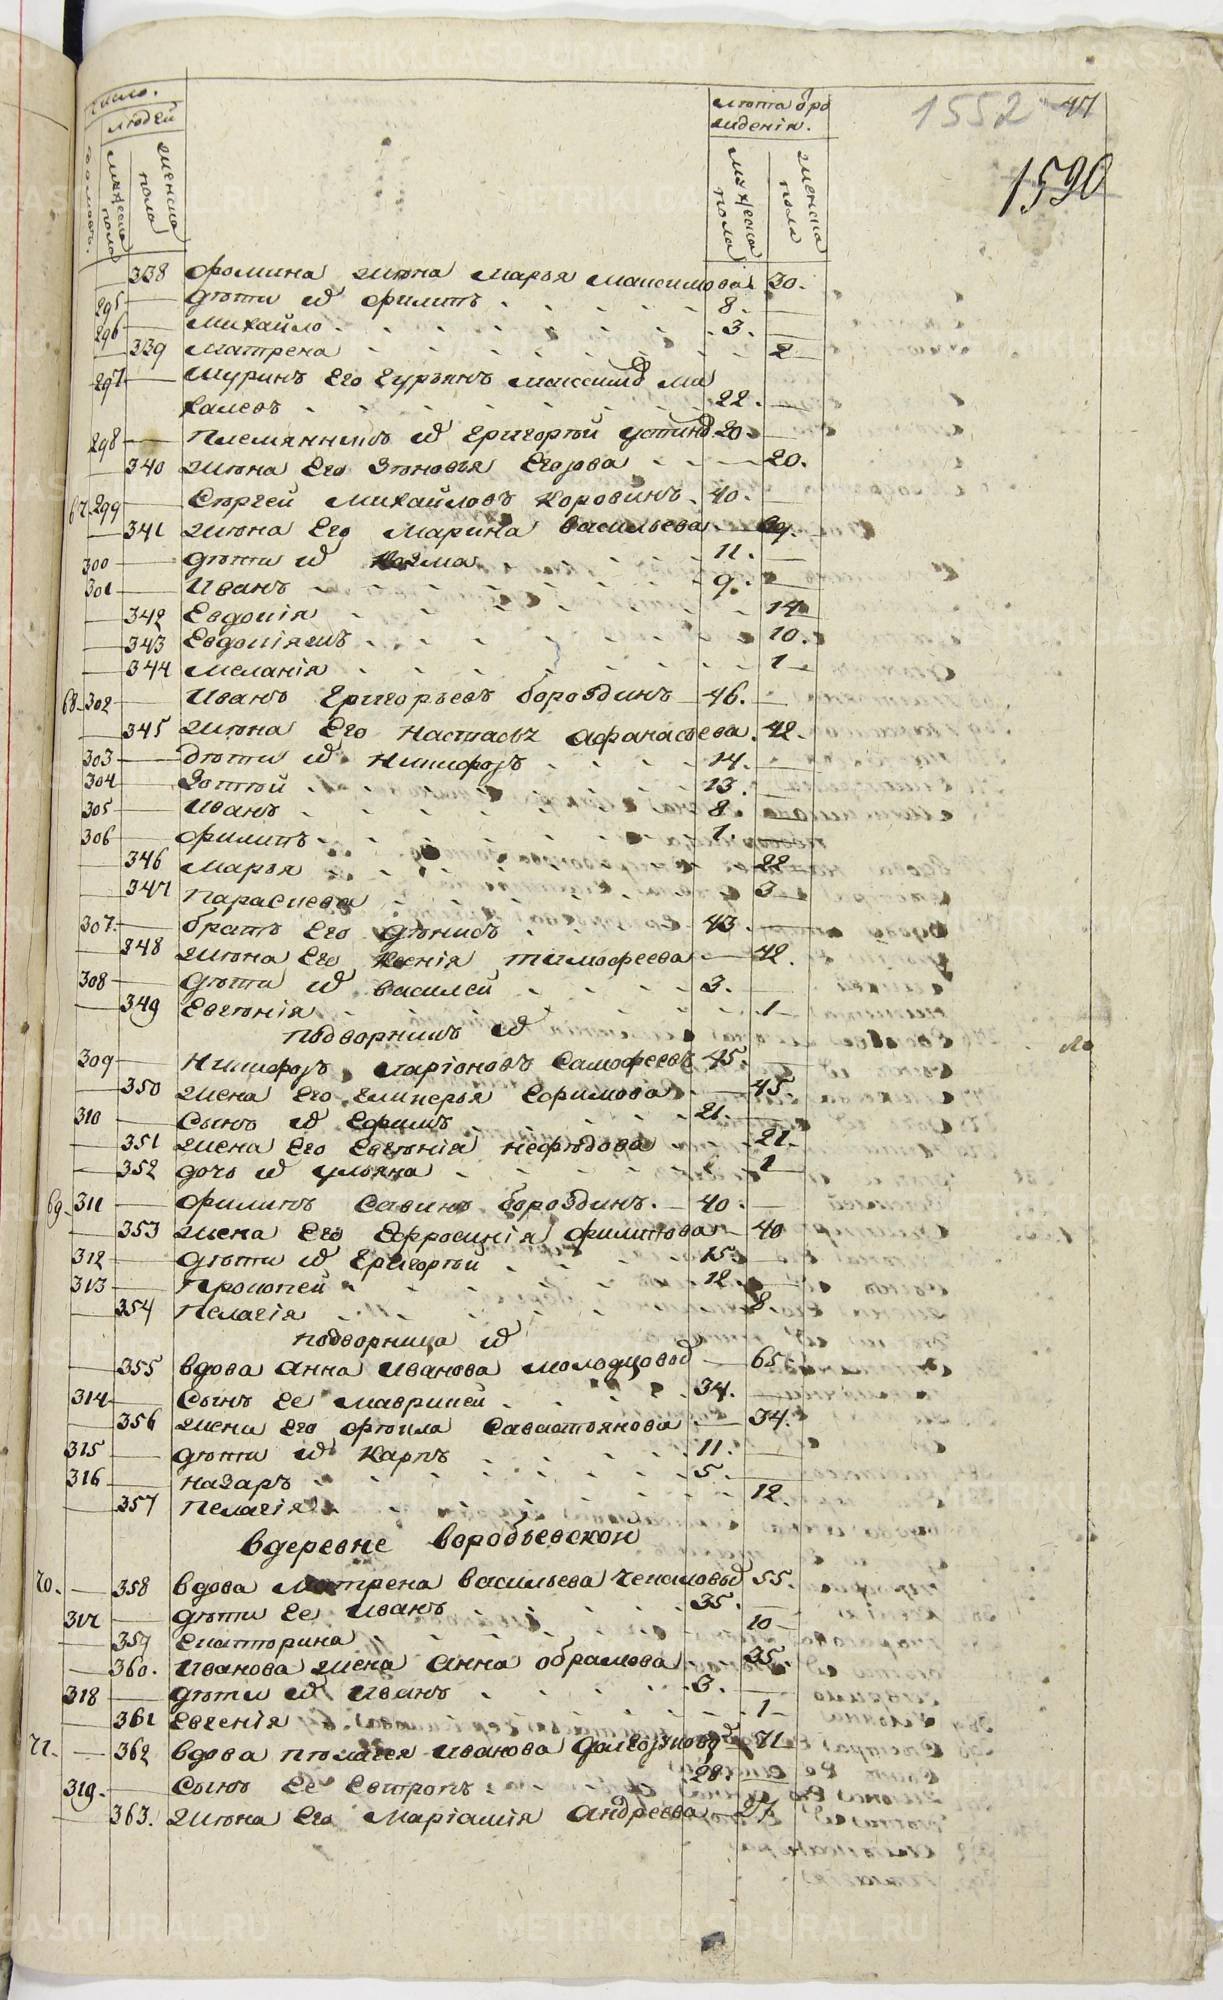 число.
людей
домовъ.
мужеска пола
женска пола
лѣта ѿ ро
жденія.
мужеска пола
женска пола
1552 47
1590
338 Фомина жена Марья Максимова 30.
295 дѣти их Филипъ 8.
296 Михайло 3.
339 Матрена 2
297 Шуринъ Его Гурьянъ Максимов Ми
халевъ 22.
298 Племянникъ их Григорей Устинов 20.
340 жена Его Зѣновья Егорова 20.
67. 299 Сѣргей Михайловъ Коровинъ 40.
341 жена Его Марина Васильева 39.
300 дѣти их Козма 11.
301 Иванъ 9.
342 Евдокія 14
343 Евдокіяжъ 10.
344 Меланія 1
68. 302 Иванъ Григорьевъ Бороздинъ 46.
345 жена Его Настасья Афанасьева 42.
303 дѣти их Никифоръ 14.
304 Зотѣй 13.
305 Иванъ 8.
306 Филипъ 1.
346 Марья 22
347 Парасковья 3
307. братъ Его Дѣнисъ 43
348 жена Его Ксенія Тимофеева 42.
308 дѣти их Василей 3.
349 Евгѣнія 1
Подворникъ их
309 Никифоръ Ларіоновъ Самофеевъ 45.
350 жена Его Гликерья Ефимова 45.
310 Сынъ их Ефимъ 21.
351 жена Его Евгѣнія Нефѣдова 21
352 дочь их Ульяна 1
69. 311 Филипъ Савинъ Бороздинъ 40.
353 жена Его Ефросинія Филипова 40
312 дѣти их Григорѣй 15
313 Прокопей 12.
354 Пелагія 8.
подворница их
355 вдова Анна Иванова Молодцовой 65
314 Сынъ Ее Маврикей 34.
356 жена Его Фѣкла Савастьянова 34.
315 дѣти их Карпъ 11.
316 Назаръ 5.
357 Пелагія 12.
вдеревне Воробьевской
70. 358 вдова Матрена Васильева Чекановы 55.
317 дѣти Ее Иванъ 35.
359 Екатторина 10
360. Иванова жена Анна Обрамова 35.
318 дѣти их Иванъ 3.
361 Евгенія 1
71. 362 вдова Пѣлагея Иванова 71
319. Сынъ Ее Евтропъ 28.
363. жена Его Маріамія Андреева 27